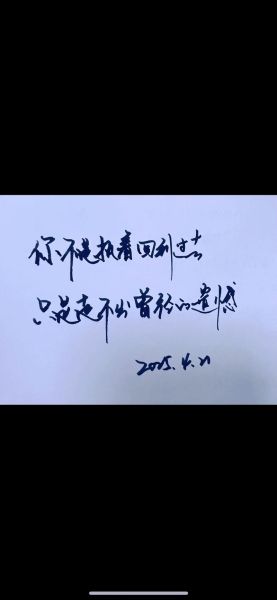 你不是执着回到过去
只是走不出曾经的遗憾
2025.4.21